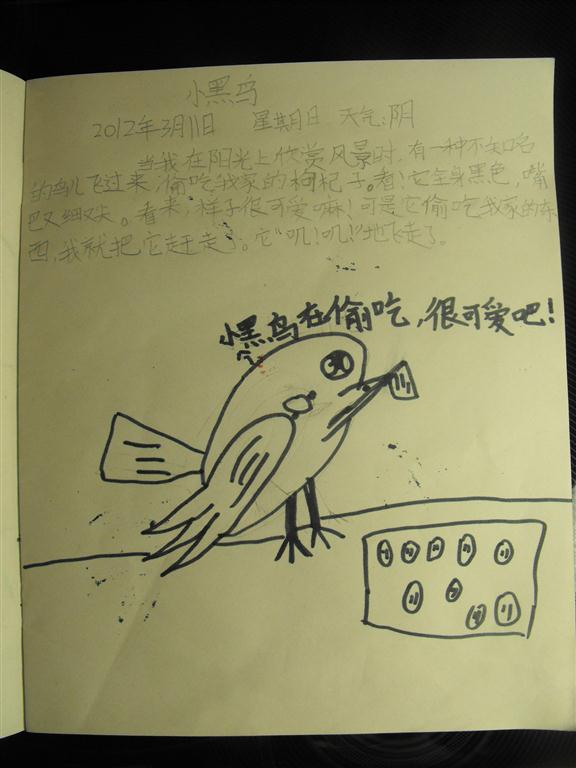 小黑鸟
2012年3月11日 星期日 天气:阴
当我在阳光上欣赏风景时,有一种不知名
的鸟儿飞过来,偷吃我家的枸杞子。看!它全身黑色,嘴
巴又细又尖。看来,样子很可爱嘛!可是它偷吃我家的东
西,我就把它赶走了。它“叽!叽!”地飞走了。
小黑鸟在偷吃,很可爱吧!